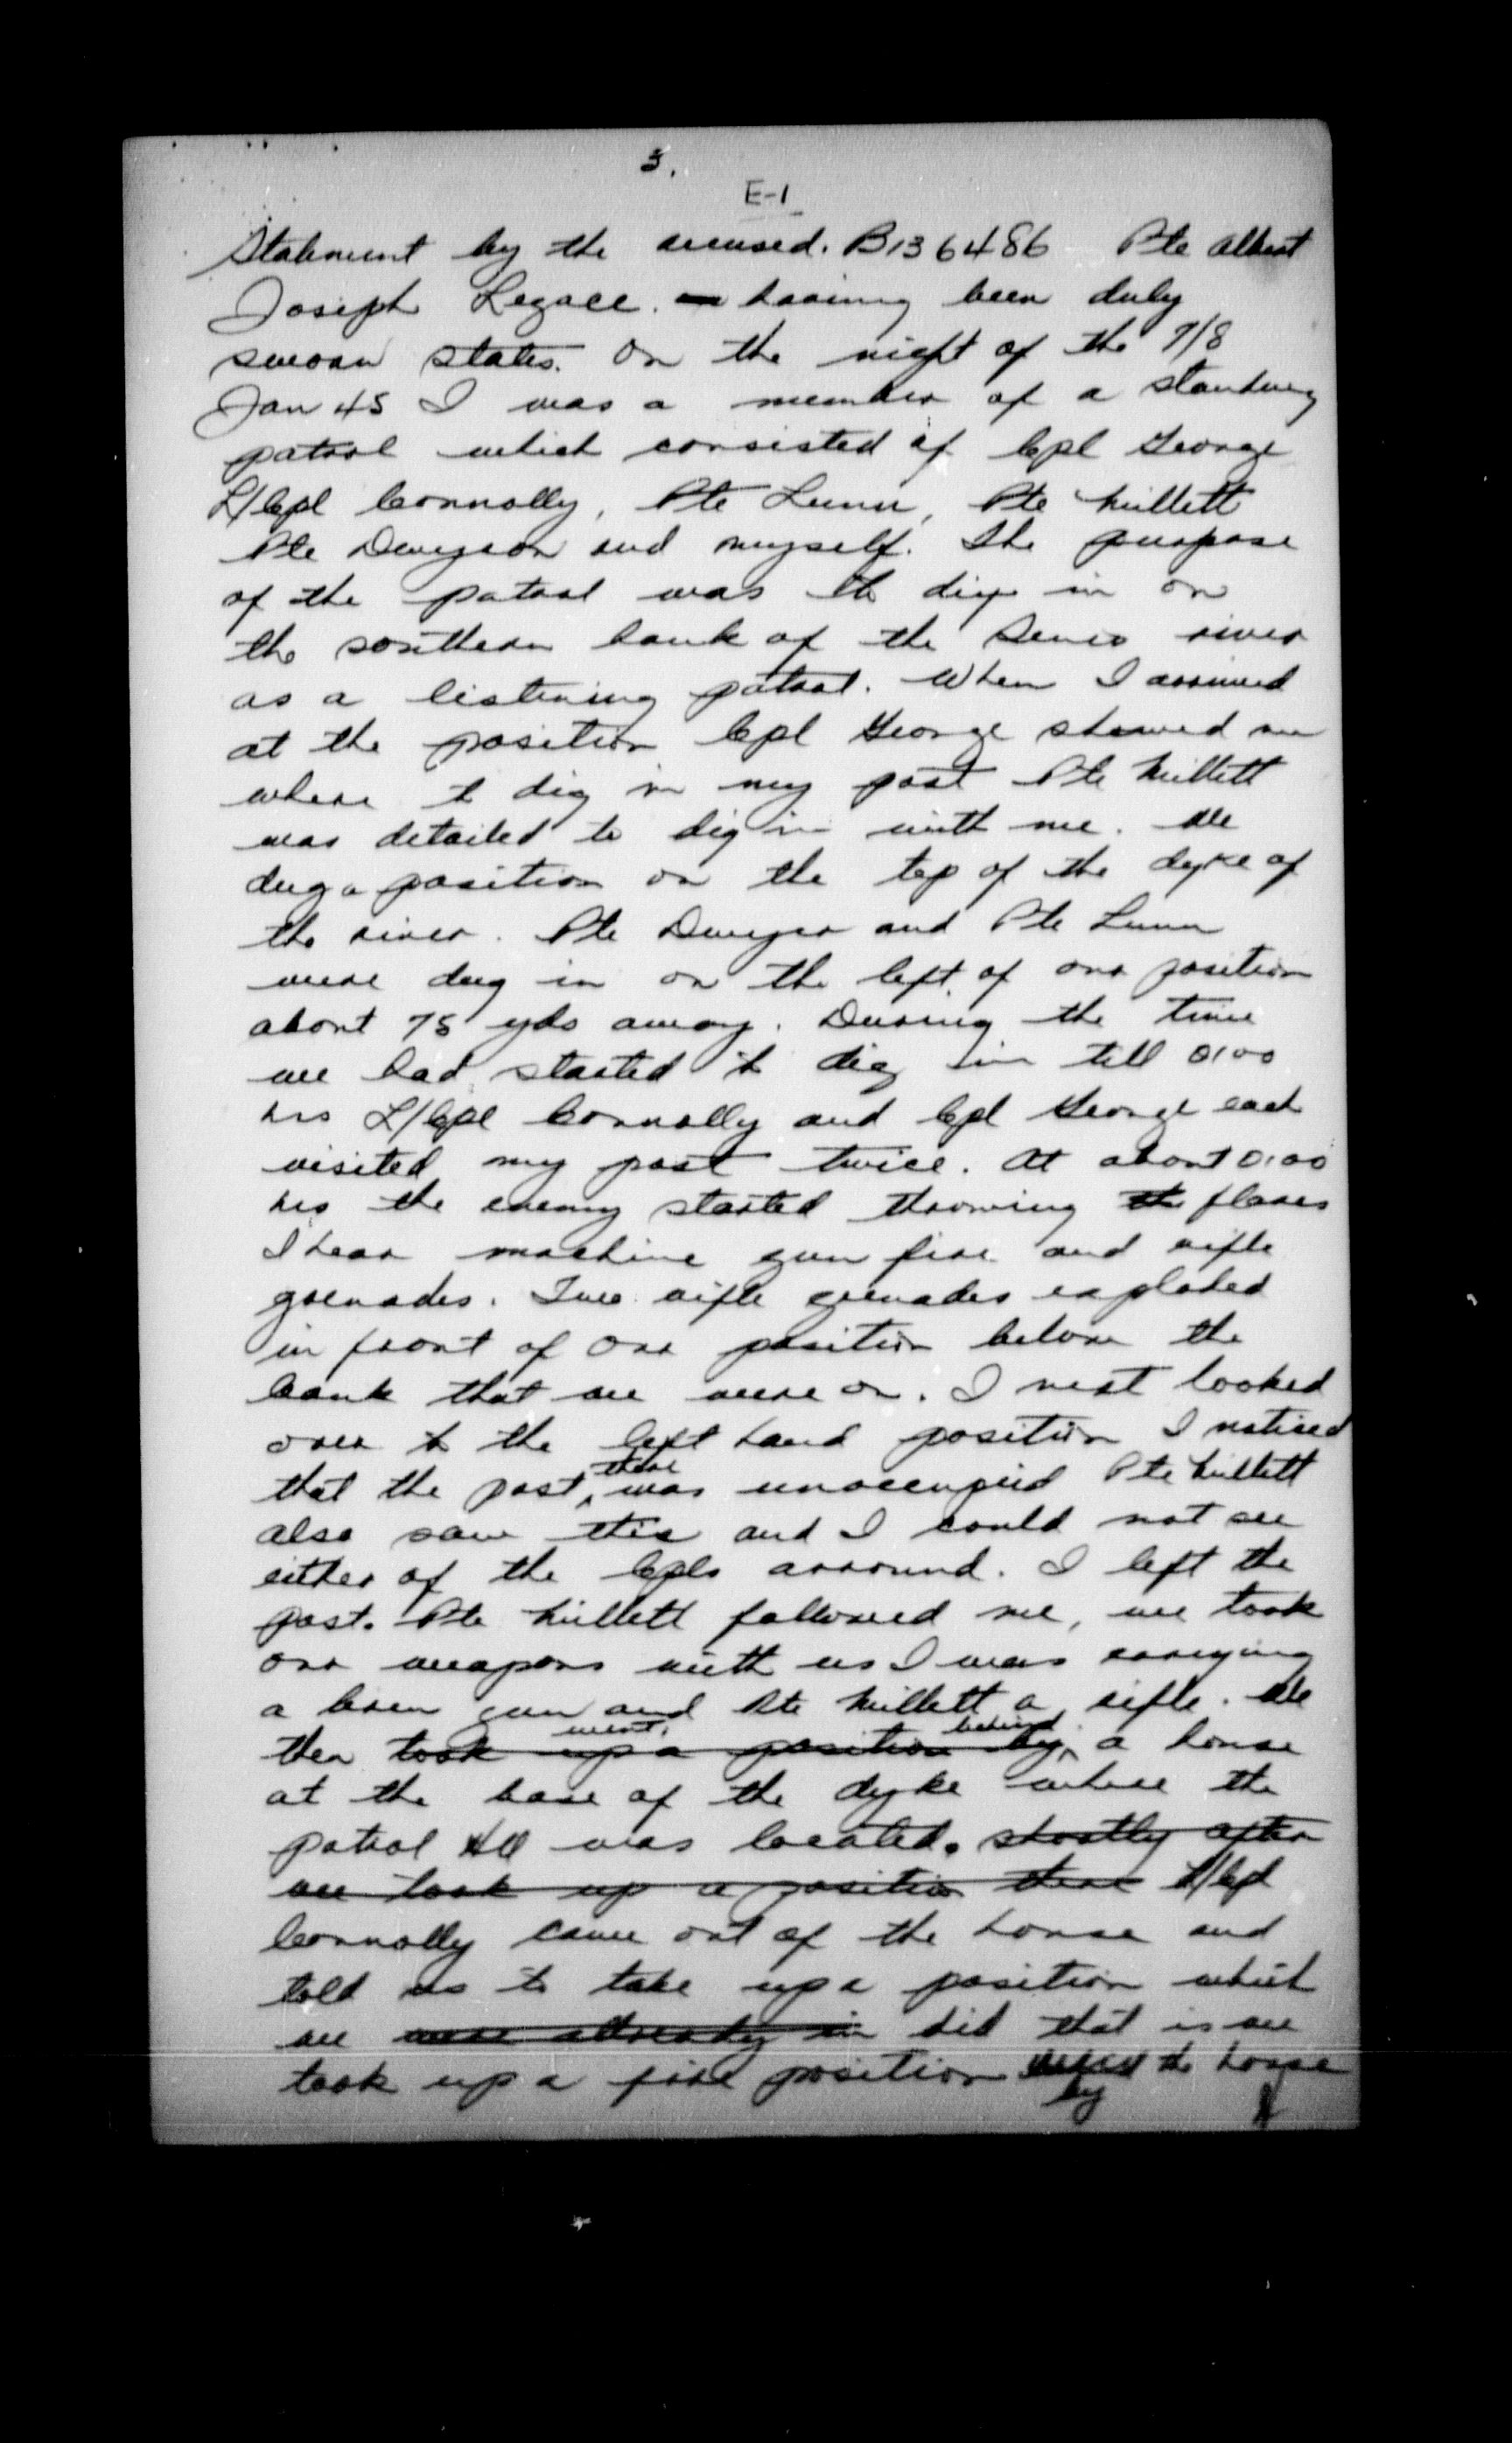 3.
E-1
Statement by the accused. B136486 Pte Albert
Joseph Legace. having been duly
sworn states. On the night of the 7/8
Jan 45 I was a member of a standing
patrol which consisted of Cpl George
L/Cpl Connolly, Pte Lunn, Pte Millett
Pte and myself. The purpose
of the patrol was to dig in on
the southern bank of the Senio river
as a listening patrol. When I arrived
at the position Cpl George showed me
where to dig in my post Pte Millett
was detailed to dig in with me. We
dug a position on the top of the dyke of
the river. Pte and Pte Lunn
were dug in on the left of our position
about 75 yds away. During the time
we had started to dig in till 0100
hrs L/Cpl Connolly and Cpl George each
visited my post twice. At about 0100
hrs the enemy started throwing the flares
I hear machine gun fire and rifle
grenades. Two rifle grenades exploded
in front of our position below the
bank that we were on. I next looked
over to the left hand position I noticed
that the post there was unoccupied Pte Millett
also saw this and I could not see
either of the Cpls arround. I left the
post. Pte Millett followed me, we took
our weapons with us I was carrying
a bren gun and Pte Millett a rifle. We
then took up a position by went behind a house
at the base of the dyke where the
patrol HQ was located. shortly after
we took up a position there L/Cpl
Connolly came out of the house and
told us to take up a position which
we were allready in did that is we
took up a fire position by the house